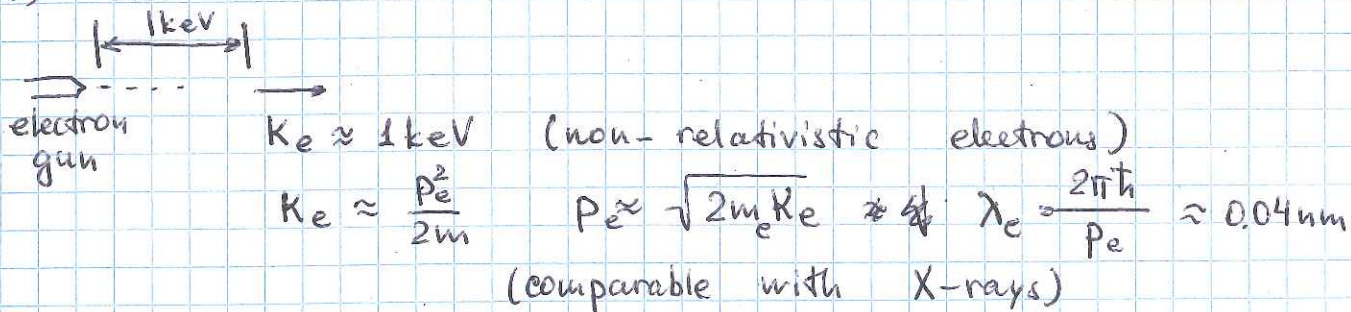 1keV
electron
gun
Ke ≈ 1keV (non-relativistic electrons)
Ke ≈ pe²/2m Pe ≈ √2meKe λe = 2πħ/Pe ≈ 0.04nm
(comparable with X-rays)